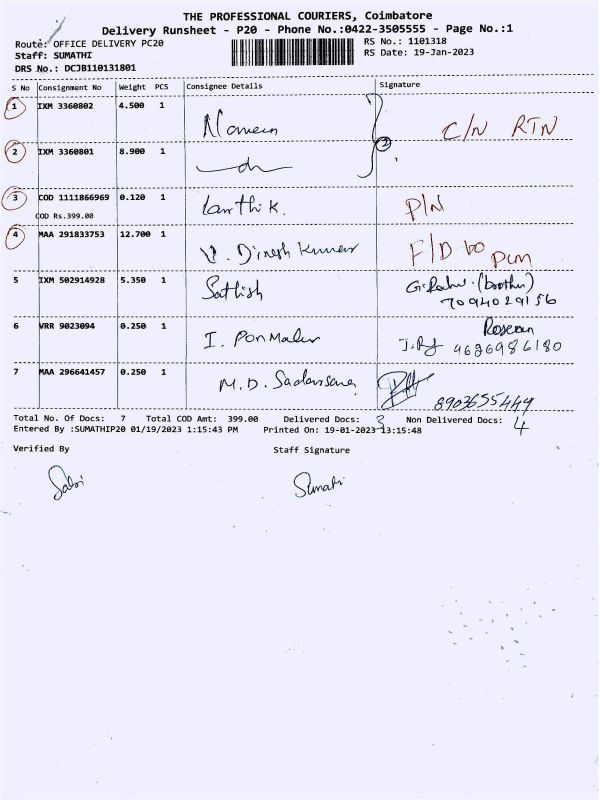 THE PROFESSIONAL COURIERS, Coimbatore
Delivery Runsheet - P20 - Phone No.:0422-3505555 - Page No.:1
Route: OFFICE DELIVERY PC20
RS No.: 1101318
Staff: SUMATHI
RS Date: 19-Jan-2023
DRS No.: DCJB110131801
S No Consignment No Weight PCS Consignee Details Signature
1 IXM 3360802 4.500 1 Naveen C/N RTN
2 IXM 3360801 8.900 1 2
3 COD 1111866969 0.120 1 Karthik. P/N
COD Rs.399.00
4 MAA 291833753 12.700 1 V. Dinesh Kumar F/D to PCM
5 IXM 502914928 5.350 1 Sathish (brother)
7094029156
6 VRR 9023094 0.250 1 I. Ponmalar
9626986180
7 MAA 296641457 0.250 1 M.D.
8903655449
Total No. Of Docs: 7 Total COD Amt: 399.00 Delivered Docs: 3 Non Delivered Docs: 4
Entered By :SUMATHIP20 01/19/2023 1:15:43 PM Printed On: 19-01-2023 13:15:48
Verified By Staff Signature
Sumathi